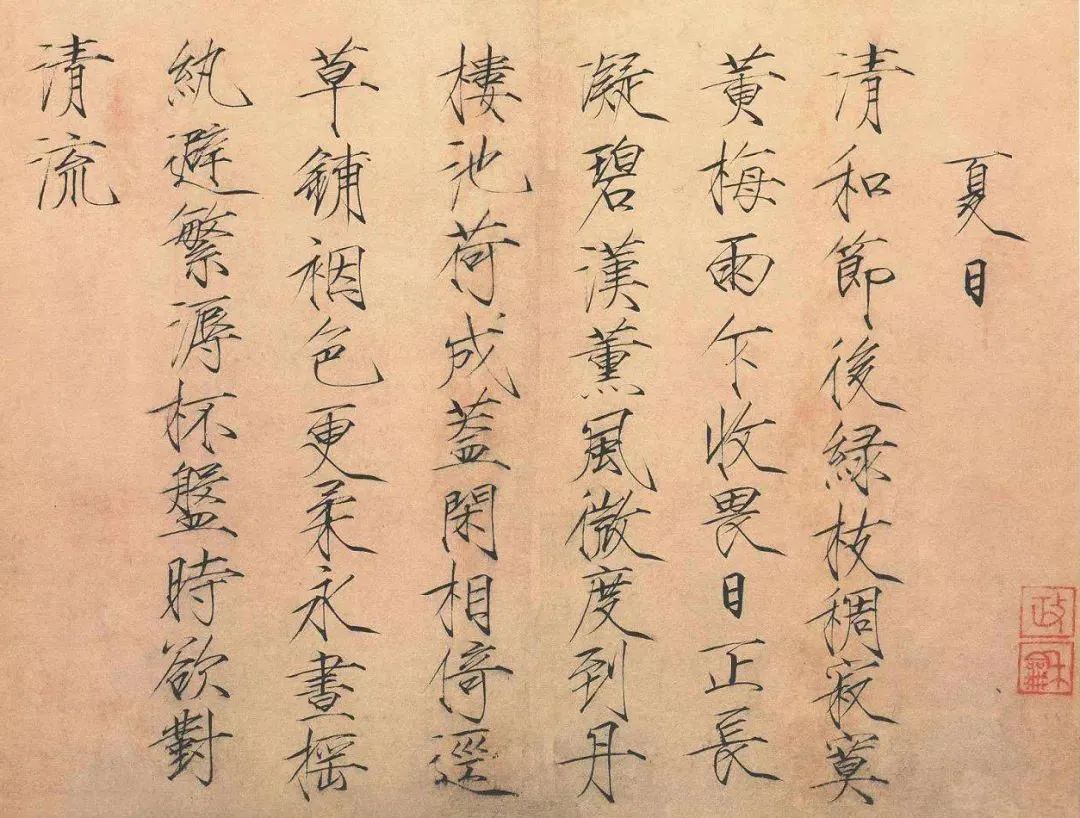 夏日
清和節後緑枝稠寂寞
黄梅雨乍收畏日正長
凝碧漢薫風微度到丹
樓池荷成蓋閑相倚逕
草鋪裀色更柔永晝揺
紈避繁溽杯盤時欲對
清流
政
龢